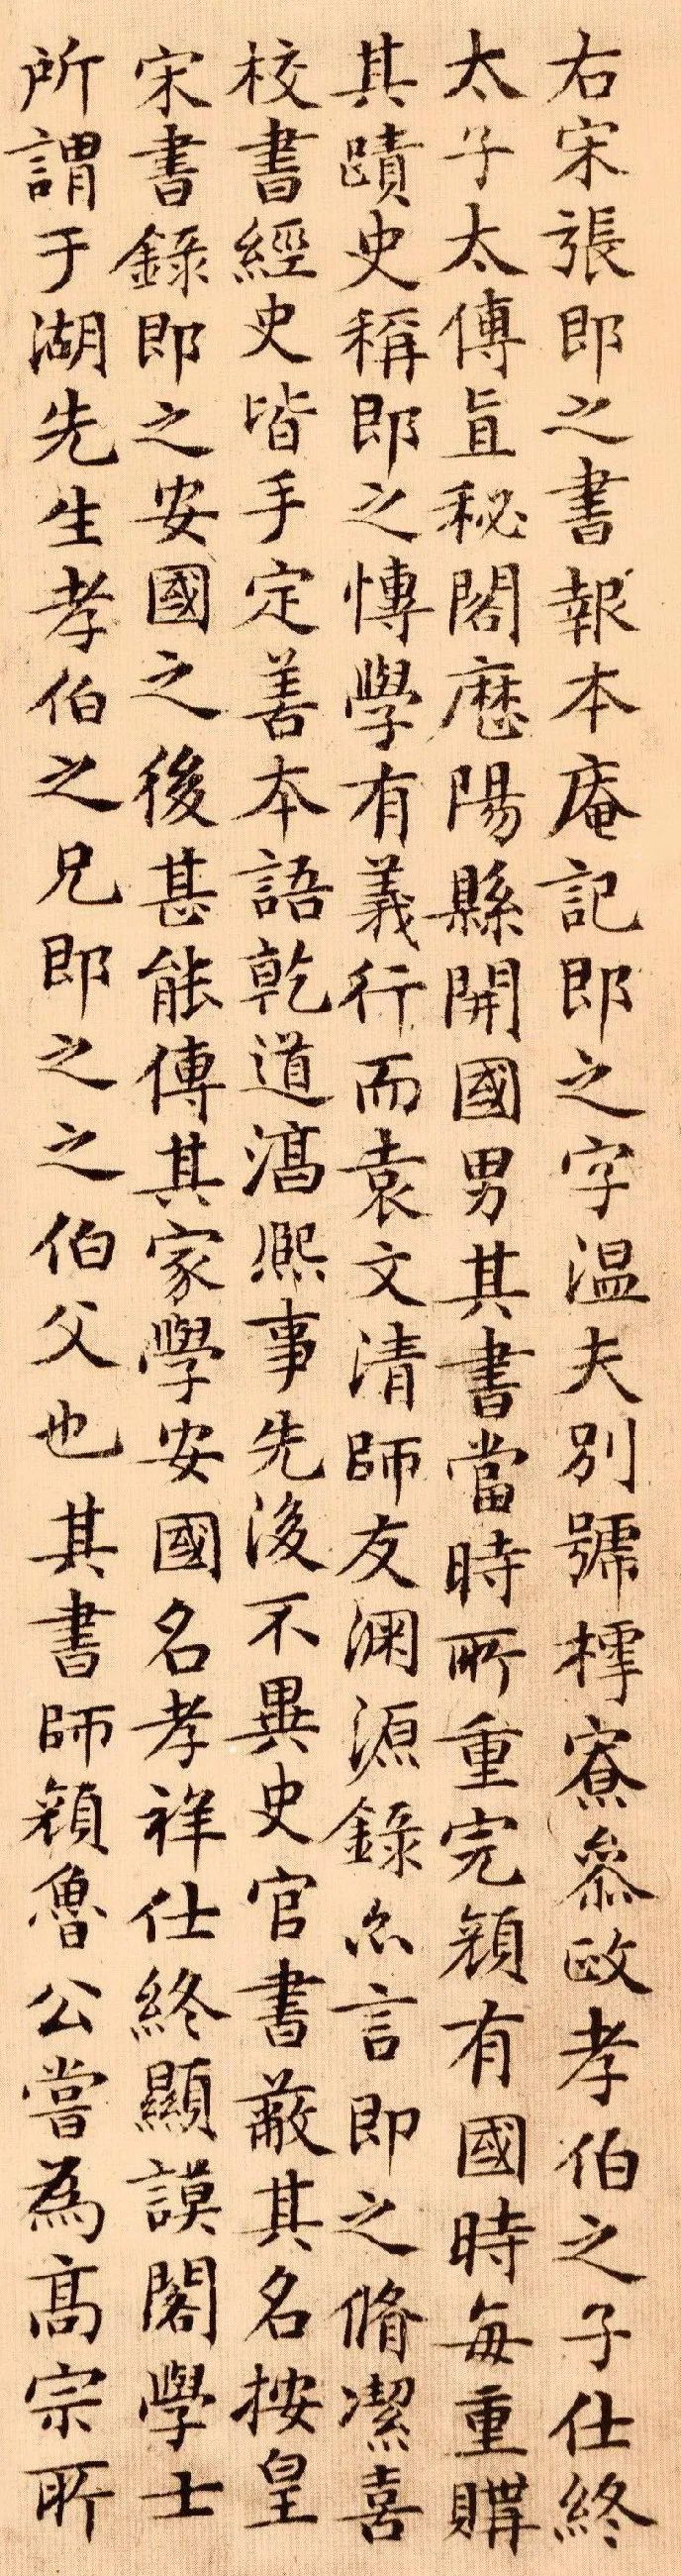 右宋張即之書報本庵記即之字温夫別號樗寮叅政孝伯之子仕終
太子太傅直秘閣歷陽縣開國男其書當時所重完顏有國時每重購
其蹟史稱即之愽學有義行而袁文清師友淵源錄亦言即之脩潔喜
校書經史皆手定善本語乾道淳熙事先後不異史官書蔽其名按皇
宋書錄即之安國之後甚能傳其家學安國名孝祥仕終顯謨閣學士
所謂于湖先生孝伯之兄即之之伯父也其書師顏魯公嘗為高宗所